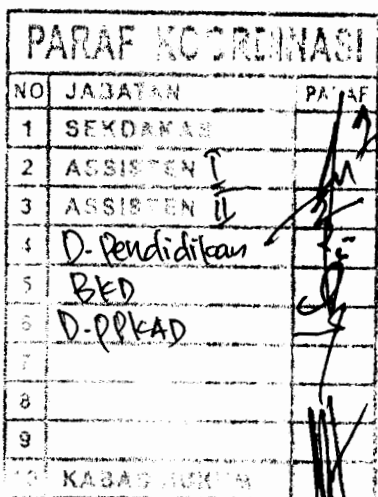 PARAF KOORDINASI
NO JABATAN PARAF
1 SEKDAKAB
2 ASSISTEN I
3 ASSISTEN II
4 D-Pendidikan
5 BKD
6 D-PPKAD
7
8
9
10 KABAG HUKUM